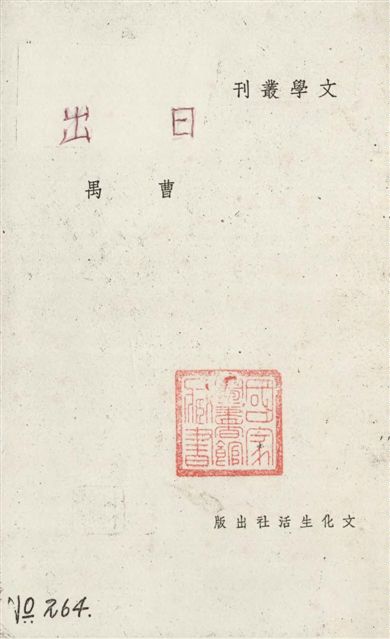 文學叢刊
日出
曹禺
國家圖書館藏書
文化生活社出版
№ 264.